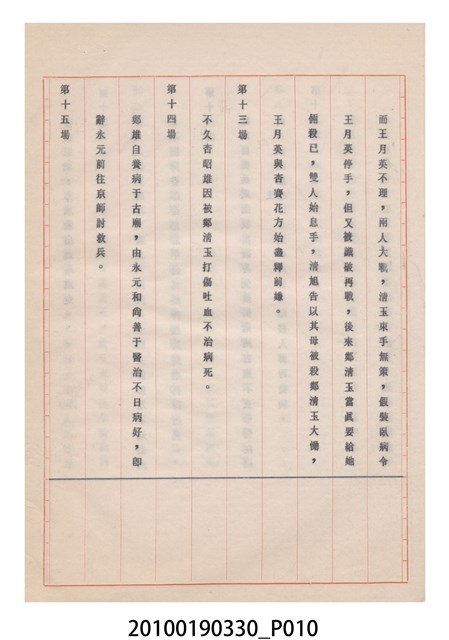 而王月英不理，兩人大戰，清玉束手無策，假裝臥病令
王月英停手，但又被識破再戰，後來鄭清玉當眞要給她
倆殺已，雙人始息手，清旭告以其母被殺鄭清玉大慟，
王月英與杏齊花方始盡釋前嫌。
第十三場
不久杏昭雄因被鄭清玉打傷吐血不治病死。
第十四場
鄭雄自養病于古廟，由永元和尚善于醫治不日病好，卽
辭永元前往京師討救兵。
第十五場
20100190330_P010